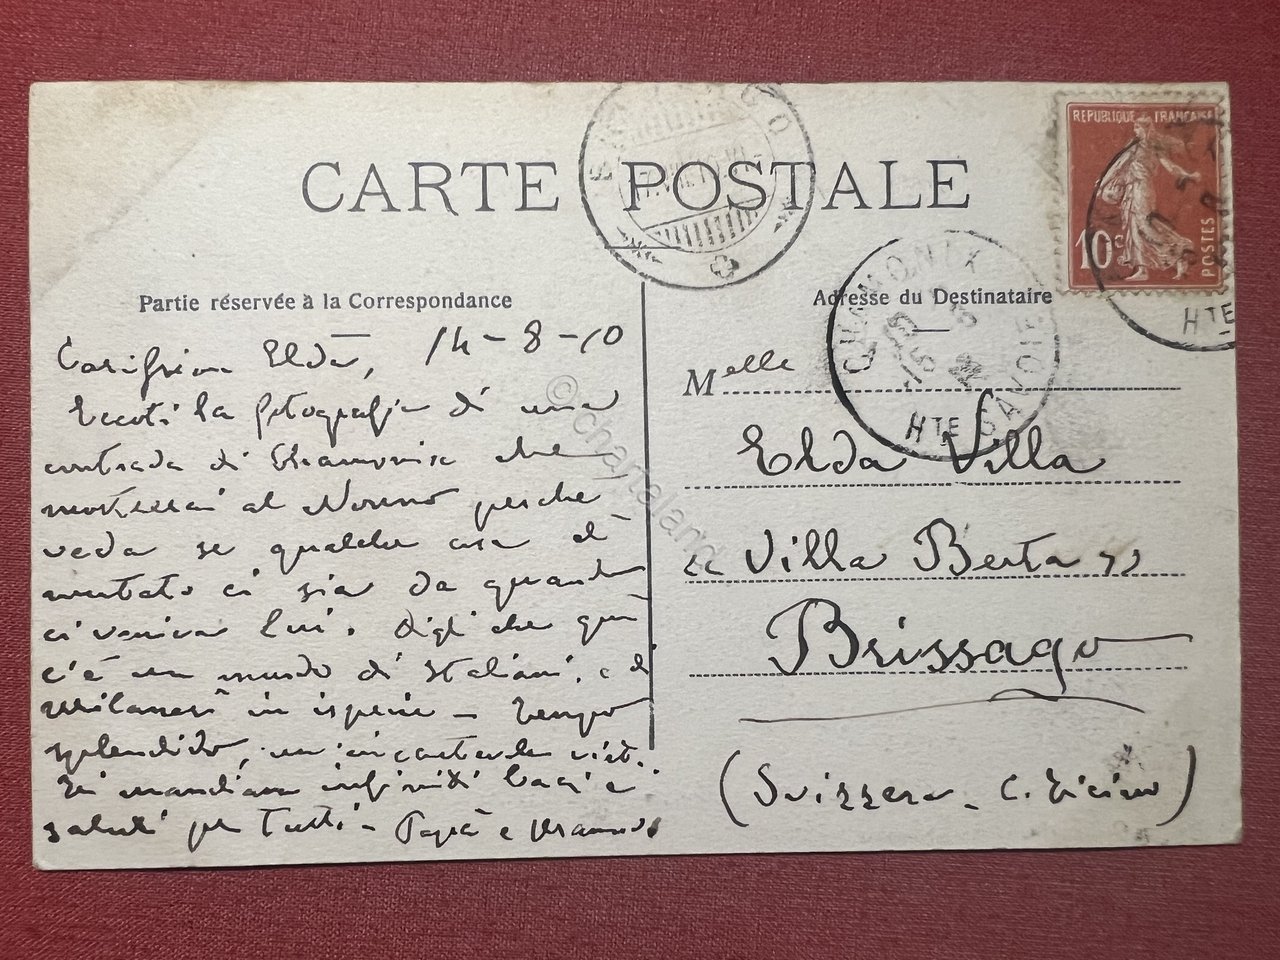 CARTE POSTALE
Partie réservée à la Correspondance
Adresse du Destinataire
REPUBLIQUE FRANÇAISE
10c
POSTES
CHAMONIX
HTE SAVOIE
HTE
© chartaland
Carissima Elda, 14-8-10
Eccoti la fotografia di una
contrada di Chamonix che
mostrerai al Nonno perche
veda se qualche cosa di
mutato ci sia da quando
ci veniva lui. Digli che qui
c'è un mondo di Italiani, e di
Milanesi in ispecie - Tempo
splendido, un'incantevole vista.
Ti mandiamo infiniti baci e
saluti per Tutti - Papà e Mamma
Melle
Elda Villa
"Villa Berta"
Brissago
(Svizzera - C. Ticino)